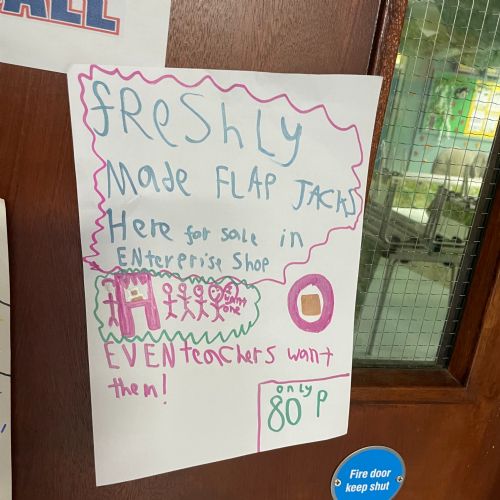 ALL
fReShLy
Made FLAP JACKS
Here for sale in
ENterprise Shop
I want
one
EVEN teachers want
them!
only
80 P
Fire door
keep shut